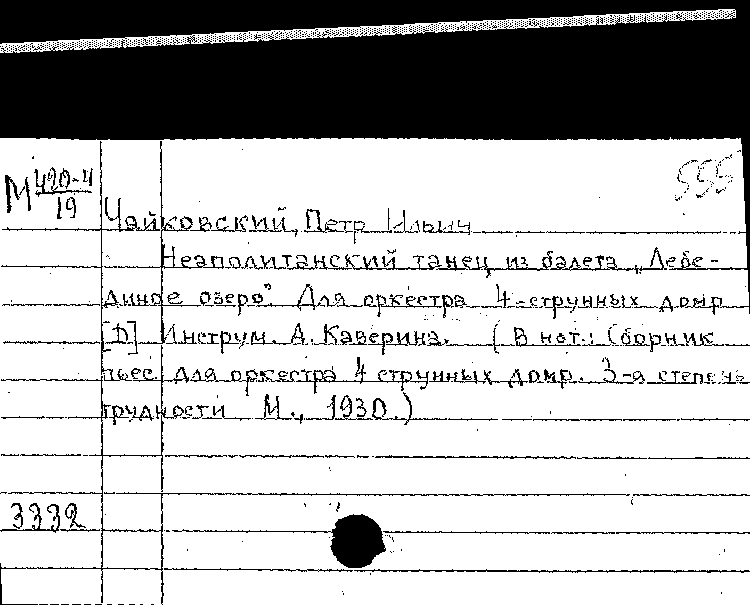 М 420-4
19
555
Чайковский, Петр Ильич
Неаполитанский танец из балета „Лебе-
диное озеро". Для оркестра 4-струнных домр
[D] Инструм. А. Каверина. (В нот.: Сборник
пьес для оркестра 4 струнных домр. 3-я степень
трудности М., 1930.)
3332